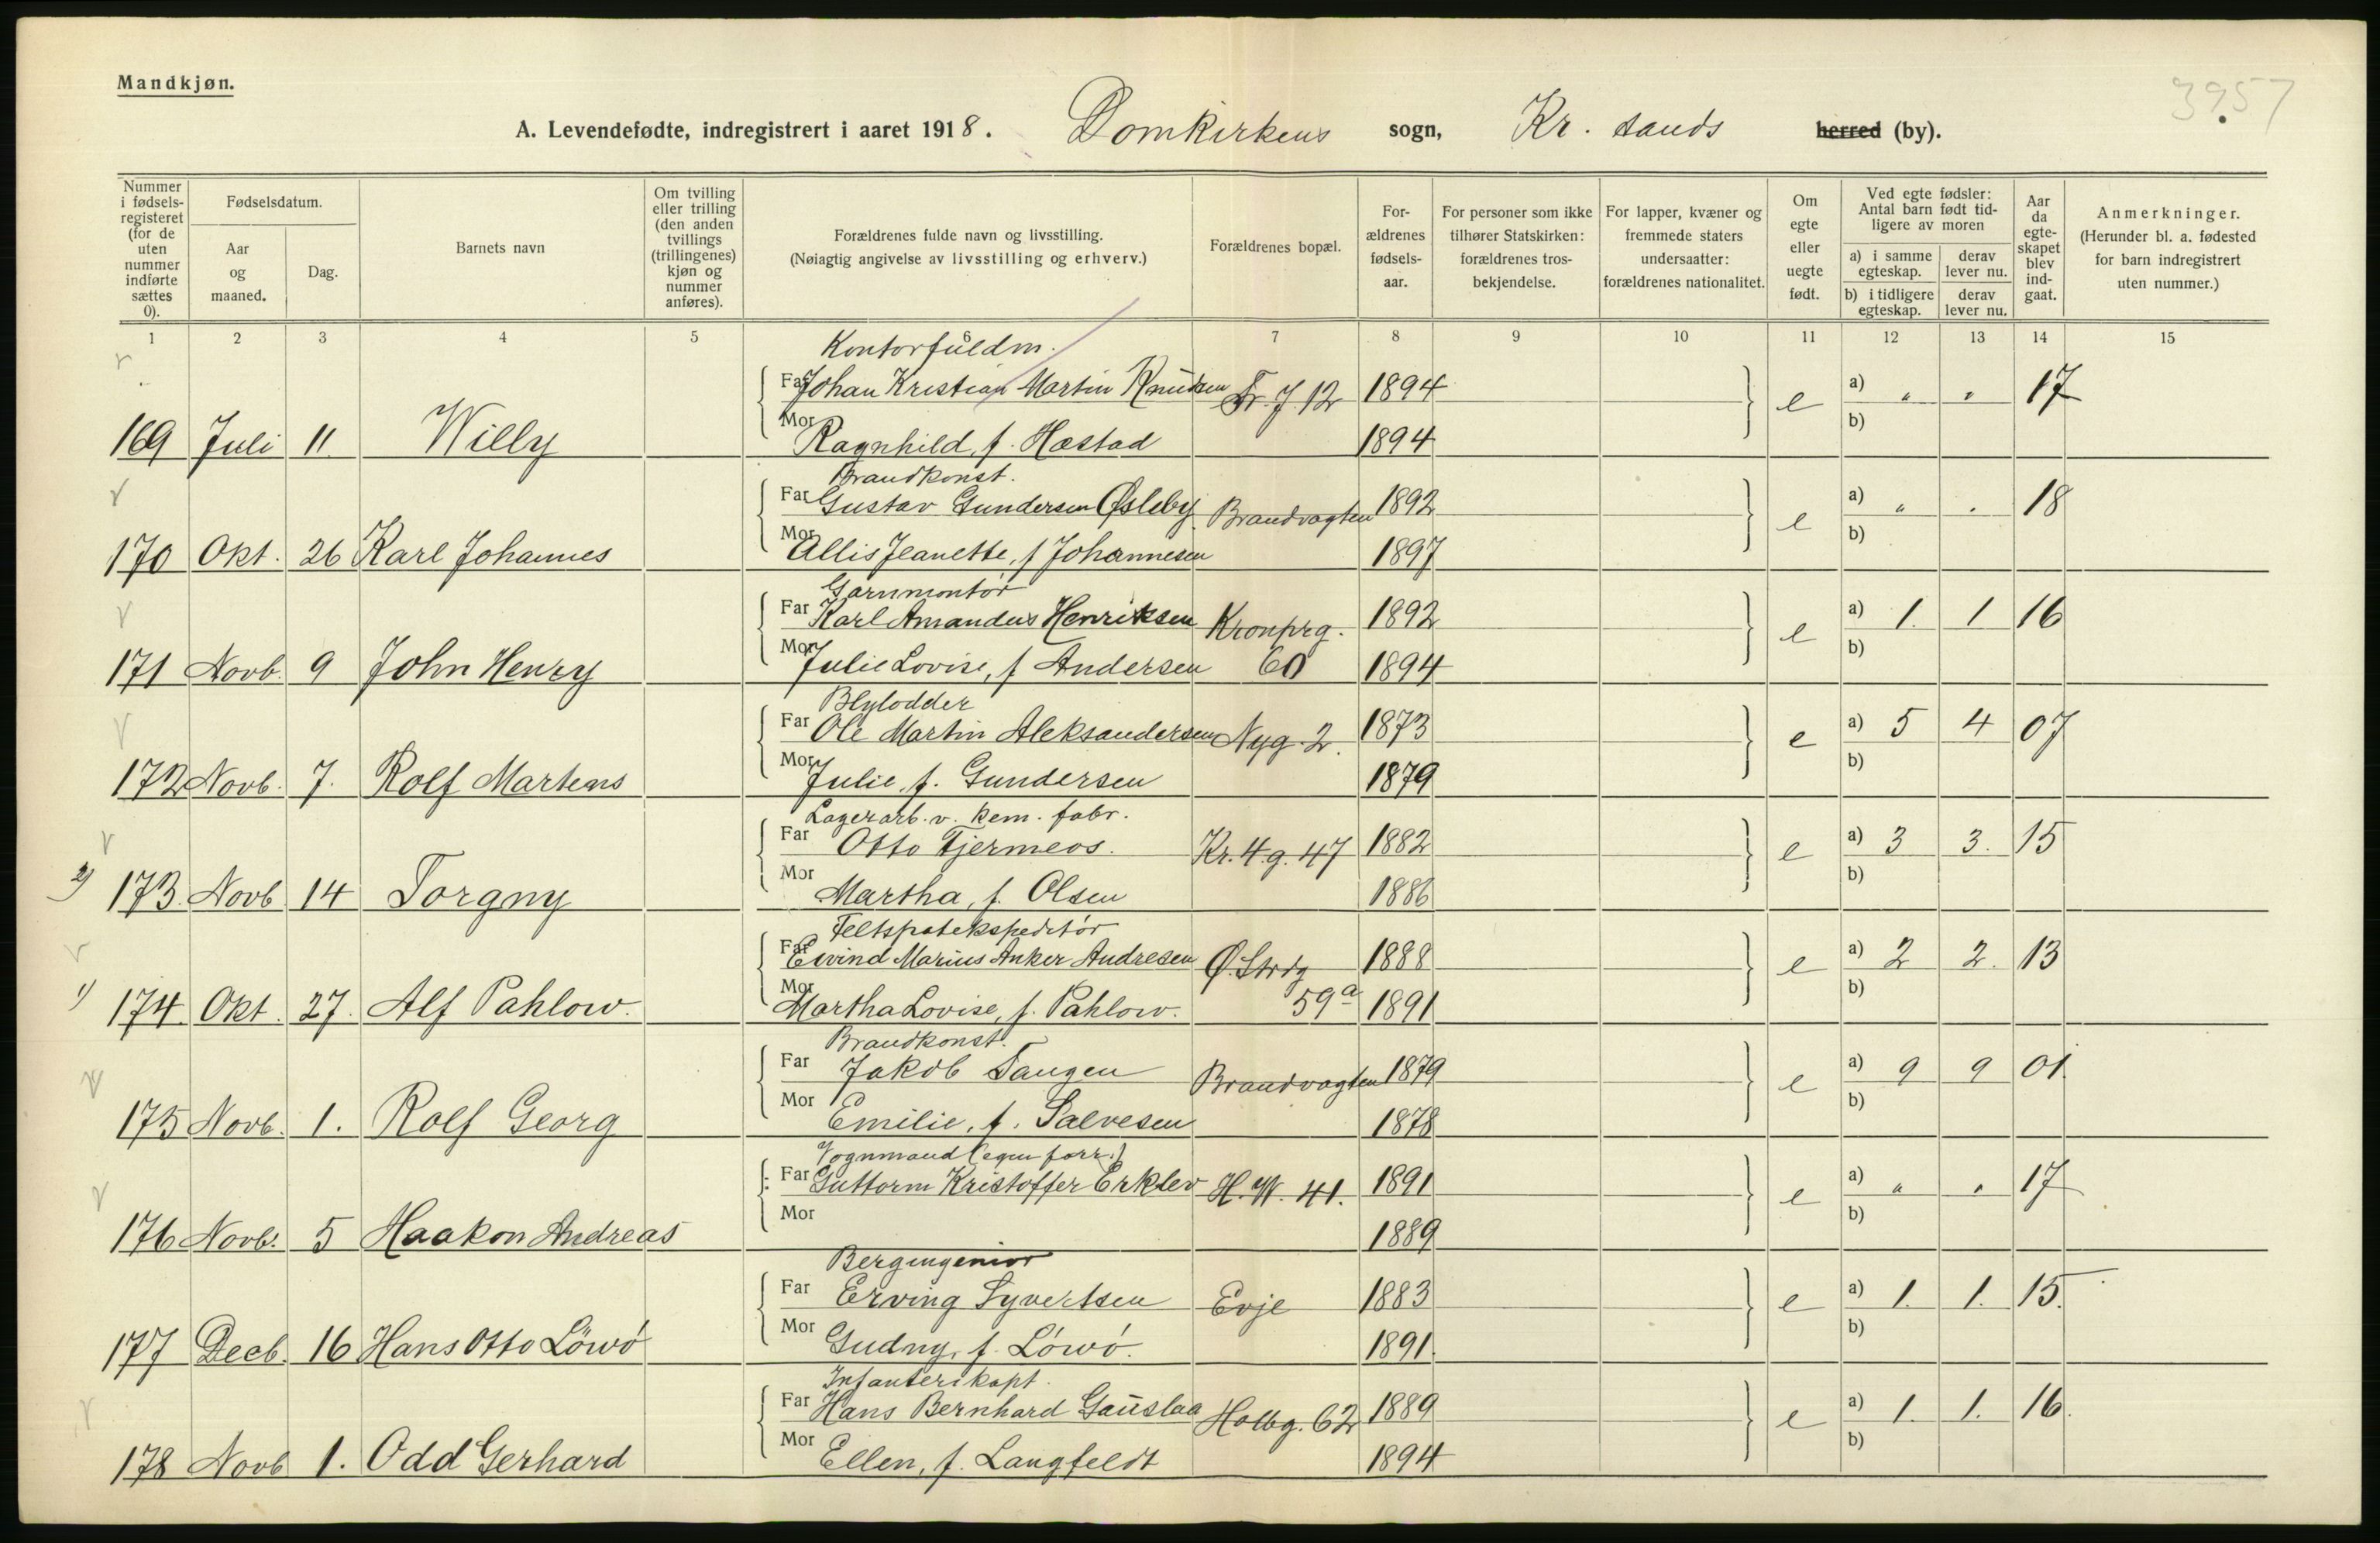 Mandkjøn.
3957
A. Levendefødte, indregistrert i aaret 1918. Domkirkens sogn, Kr. sands herred (by).
Nummer i fødsels-registeret (for de uten nummer indførte sættes 0).
Fødselsdatum.
Aar og maaned.
Dag.
Barnets navn
Om tvilling eller trilling (den anden tvillings (trillingenes) kjøn og nummer anføres).
Forældrenes fulde navn og livsstilling.
(Nøiagtig angivelse av livsstilling og erhverv.)
Forældrenes bopæl.
For-ældrenes fødsels-aar.
For personer som ikke tilhører Statskirken: forældrenes tros-bekjendelse.
For lapper, kvæner og fremmede staters undersaatter: forældrenes nationalitet.
Om egte eller uegte født.
Ved egte fødsler: Antal barn født tid-ligere av moren
a) i samme egteskap. derav lever nu.
b) i tidligere egteskap. derav lever nu.
Aar da egte-skapet blev ind-gaat.
Anmerkninger.
(Herunder bl. a. fødested for barn indregistrert uten nummer.)
1 2 3 4 5 6 7 8 9 10 11 12 13 14 15
Kontorfuldm.
Far Johan Kristian Martin Knudsen Fr. J. 12 1894 e a) " " 17
169 Juli 11. Willy Mor Ragnhild, f. Hæstad 1894 b)
Brandkonst.
Far Gustav Gundersen Øsleby Brandvagten 1892 e a) " . 18
170 Okt. 26 Karl Johannes Mor Allis Jeanette, f Johannesen 1897 b)
Garnmontør
Far Karl Amandus Henriksen Kronprg. 1892 e a) 1. 1 16
171 Novb. 9 John Henry Mor Julie Lovise, f Andersen 60 1894 b)
Blylodder
Far Ole Martin Aleksandersen Nyg. 2. 1873 e a) 5 4 07
172 Novb. 7. Rolf Martens Mor Julie, f. Gundersen 1879 b)
Lagerarb. v. kem. fabr.
Far Otto Tjermeos. Kr. 4. g. 47 1882 e a) 3 3. 15
2) 173. Novb 14 Torgny Mor Martha, f. Olsen 1886 b)
Feltspatekspeditør
Far Eivind Marius Anker Andresen Ø. Strdg 1888 e a) 2 2. 13
1) 174. Okt. 27. Alf Pahlow. Mor Martha Lovise, f. Pahlow. 59a 1891 b)
Brandkonst.
Far Jakob Tangen Brandvagten 1879 e a) 9 9 01.
175 Novb. 1. Rolf Georg Mor Emilie, f. Salvesen 1878 b)
Vognmand (egen forr.)
Far Guttorm Kristoffer Erklev H. W. 41. 1891 e a) " " 17
176 Novb. 5 Haakon Andreas Mor 1889 b)
Bergingeniør
Far Erving Syvertsen Evje 1883 e a) 1. 1. 15.
177 Decb. 16 Hans Otto Löwö Mor Gudny, f. Löwö. 1891. b)
Infanterikapt.
Far Hans Bernhard Gauslaa Holbg. 62 1889 e a) 1. 1. 16.
178 Novb 1. Odd Gerhard Mor Ellen, f. Langfeldt 1894 b)